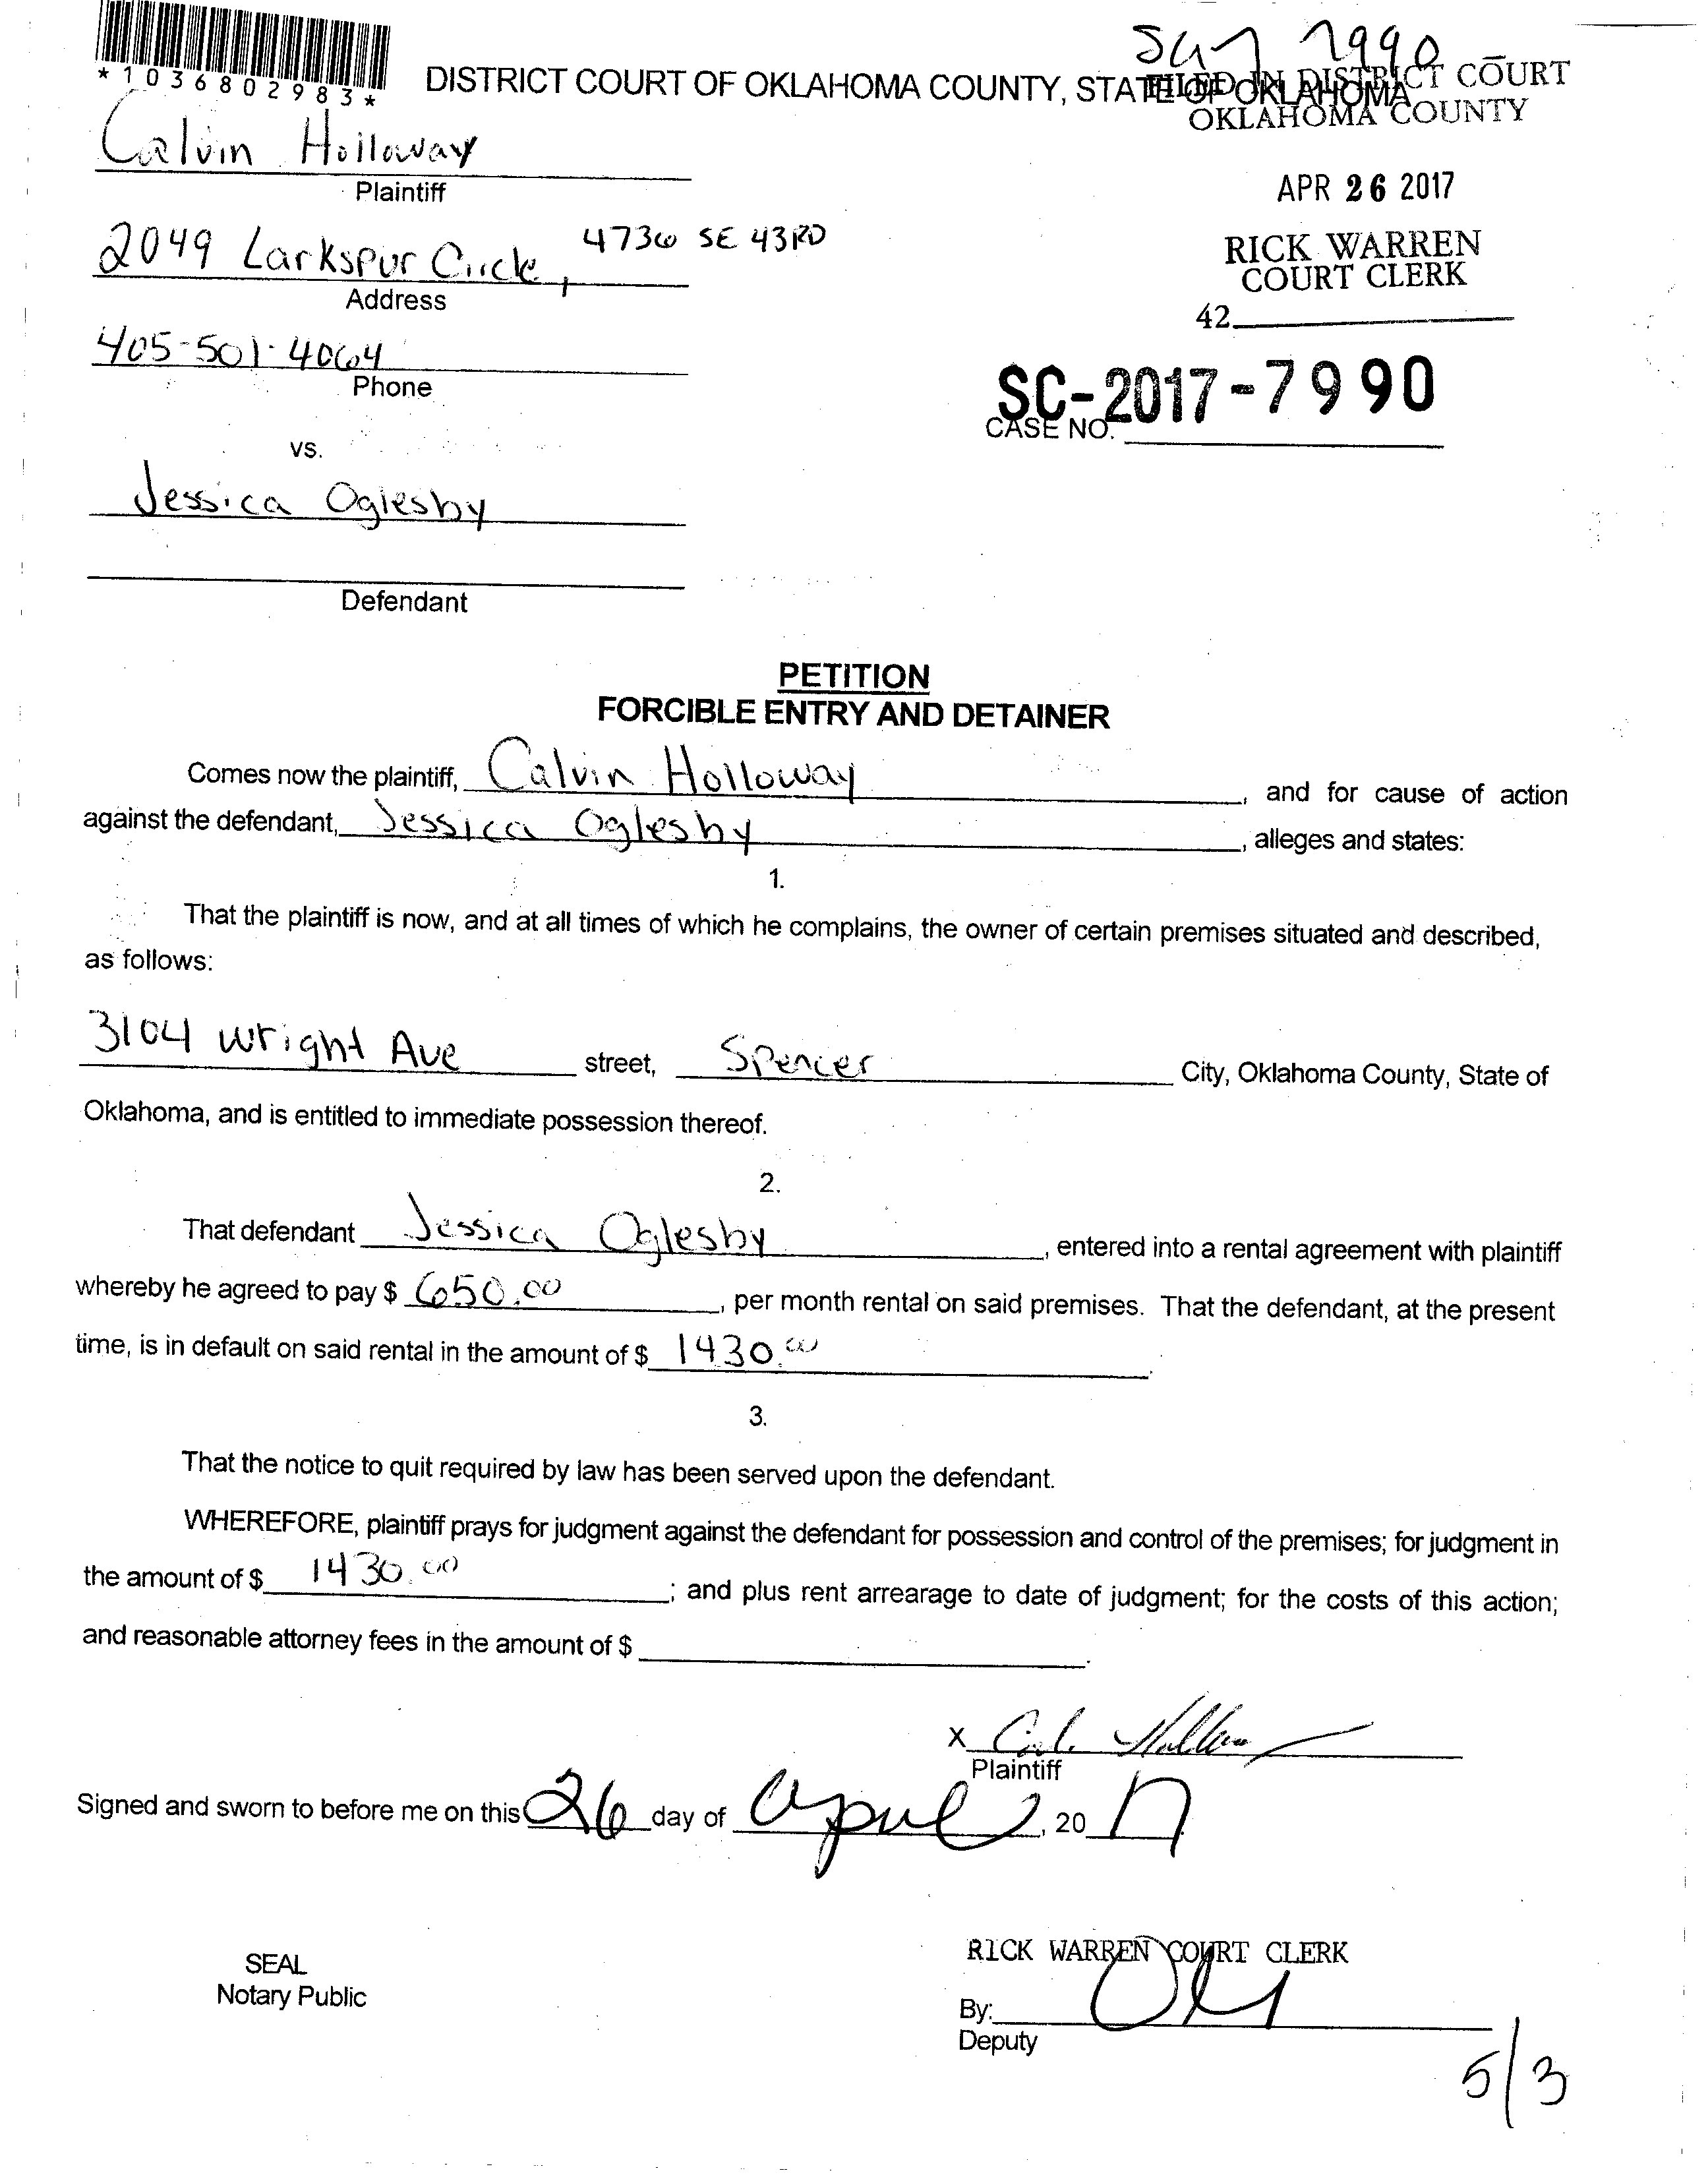 SC17 7990
*1036802983*
DISTRICT COURT OF OKLAHOMA COUNTY, STATE OF OKLAHOMA
FILED IN DISTRICT COURT
OKLAHOMA COUNTY
Calvin Holloway
Plaintiff
APR 26 2017
2049 Larkspur Circle, 4736 SE 43RD
Address
RICK WARREN
COURT CLERK
42
405-501-4064
Phone
SC-2017-7990
CASE NO.
vs.
Jessica Oglesby
Defendant
PETITION
FORCIBLE ENTRY AND DETAINER
Comes now the plaintiff, Calvin Holloway, and for cause of action
against the defendant, Jessica Oglesby, alleges and states:
1.
That the plaintiff is now, and at all times of which he complains, the owner of certain premises situated and described,
as follows:
3104 Wright Ave street, Spencer City, Oklahoma County, State of
Oklahoma, and is entitled to immediate possession thereof.
2.
That defendant Jessica Oglesby, entered into a rental agreement with plaintiff
whereby he agreed to pay $ 650.00, per month rental on said premises. That the defendant, at the present
time, is in default on said rental in the amount of $ 1430.00.
3.
That the notice to quit required by law has been served upon the defendant.
WHEREFORE, plaintiff prays for judgment against the defendant for possession and control of the premises; for judgment in
the amount of $ 1430.00; and plus rent arrearage to date of judgment; for the costs of this action;
and reasonable attorney fees in the amount of $ .
X
Plaintiff
Signed and sworn to before me on this 26 day of April, 20 17
SEAL
Notary Public
RICK WARREN COURT CLERK
By:
Deputy
5/3